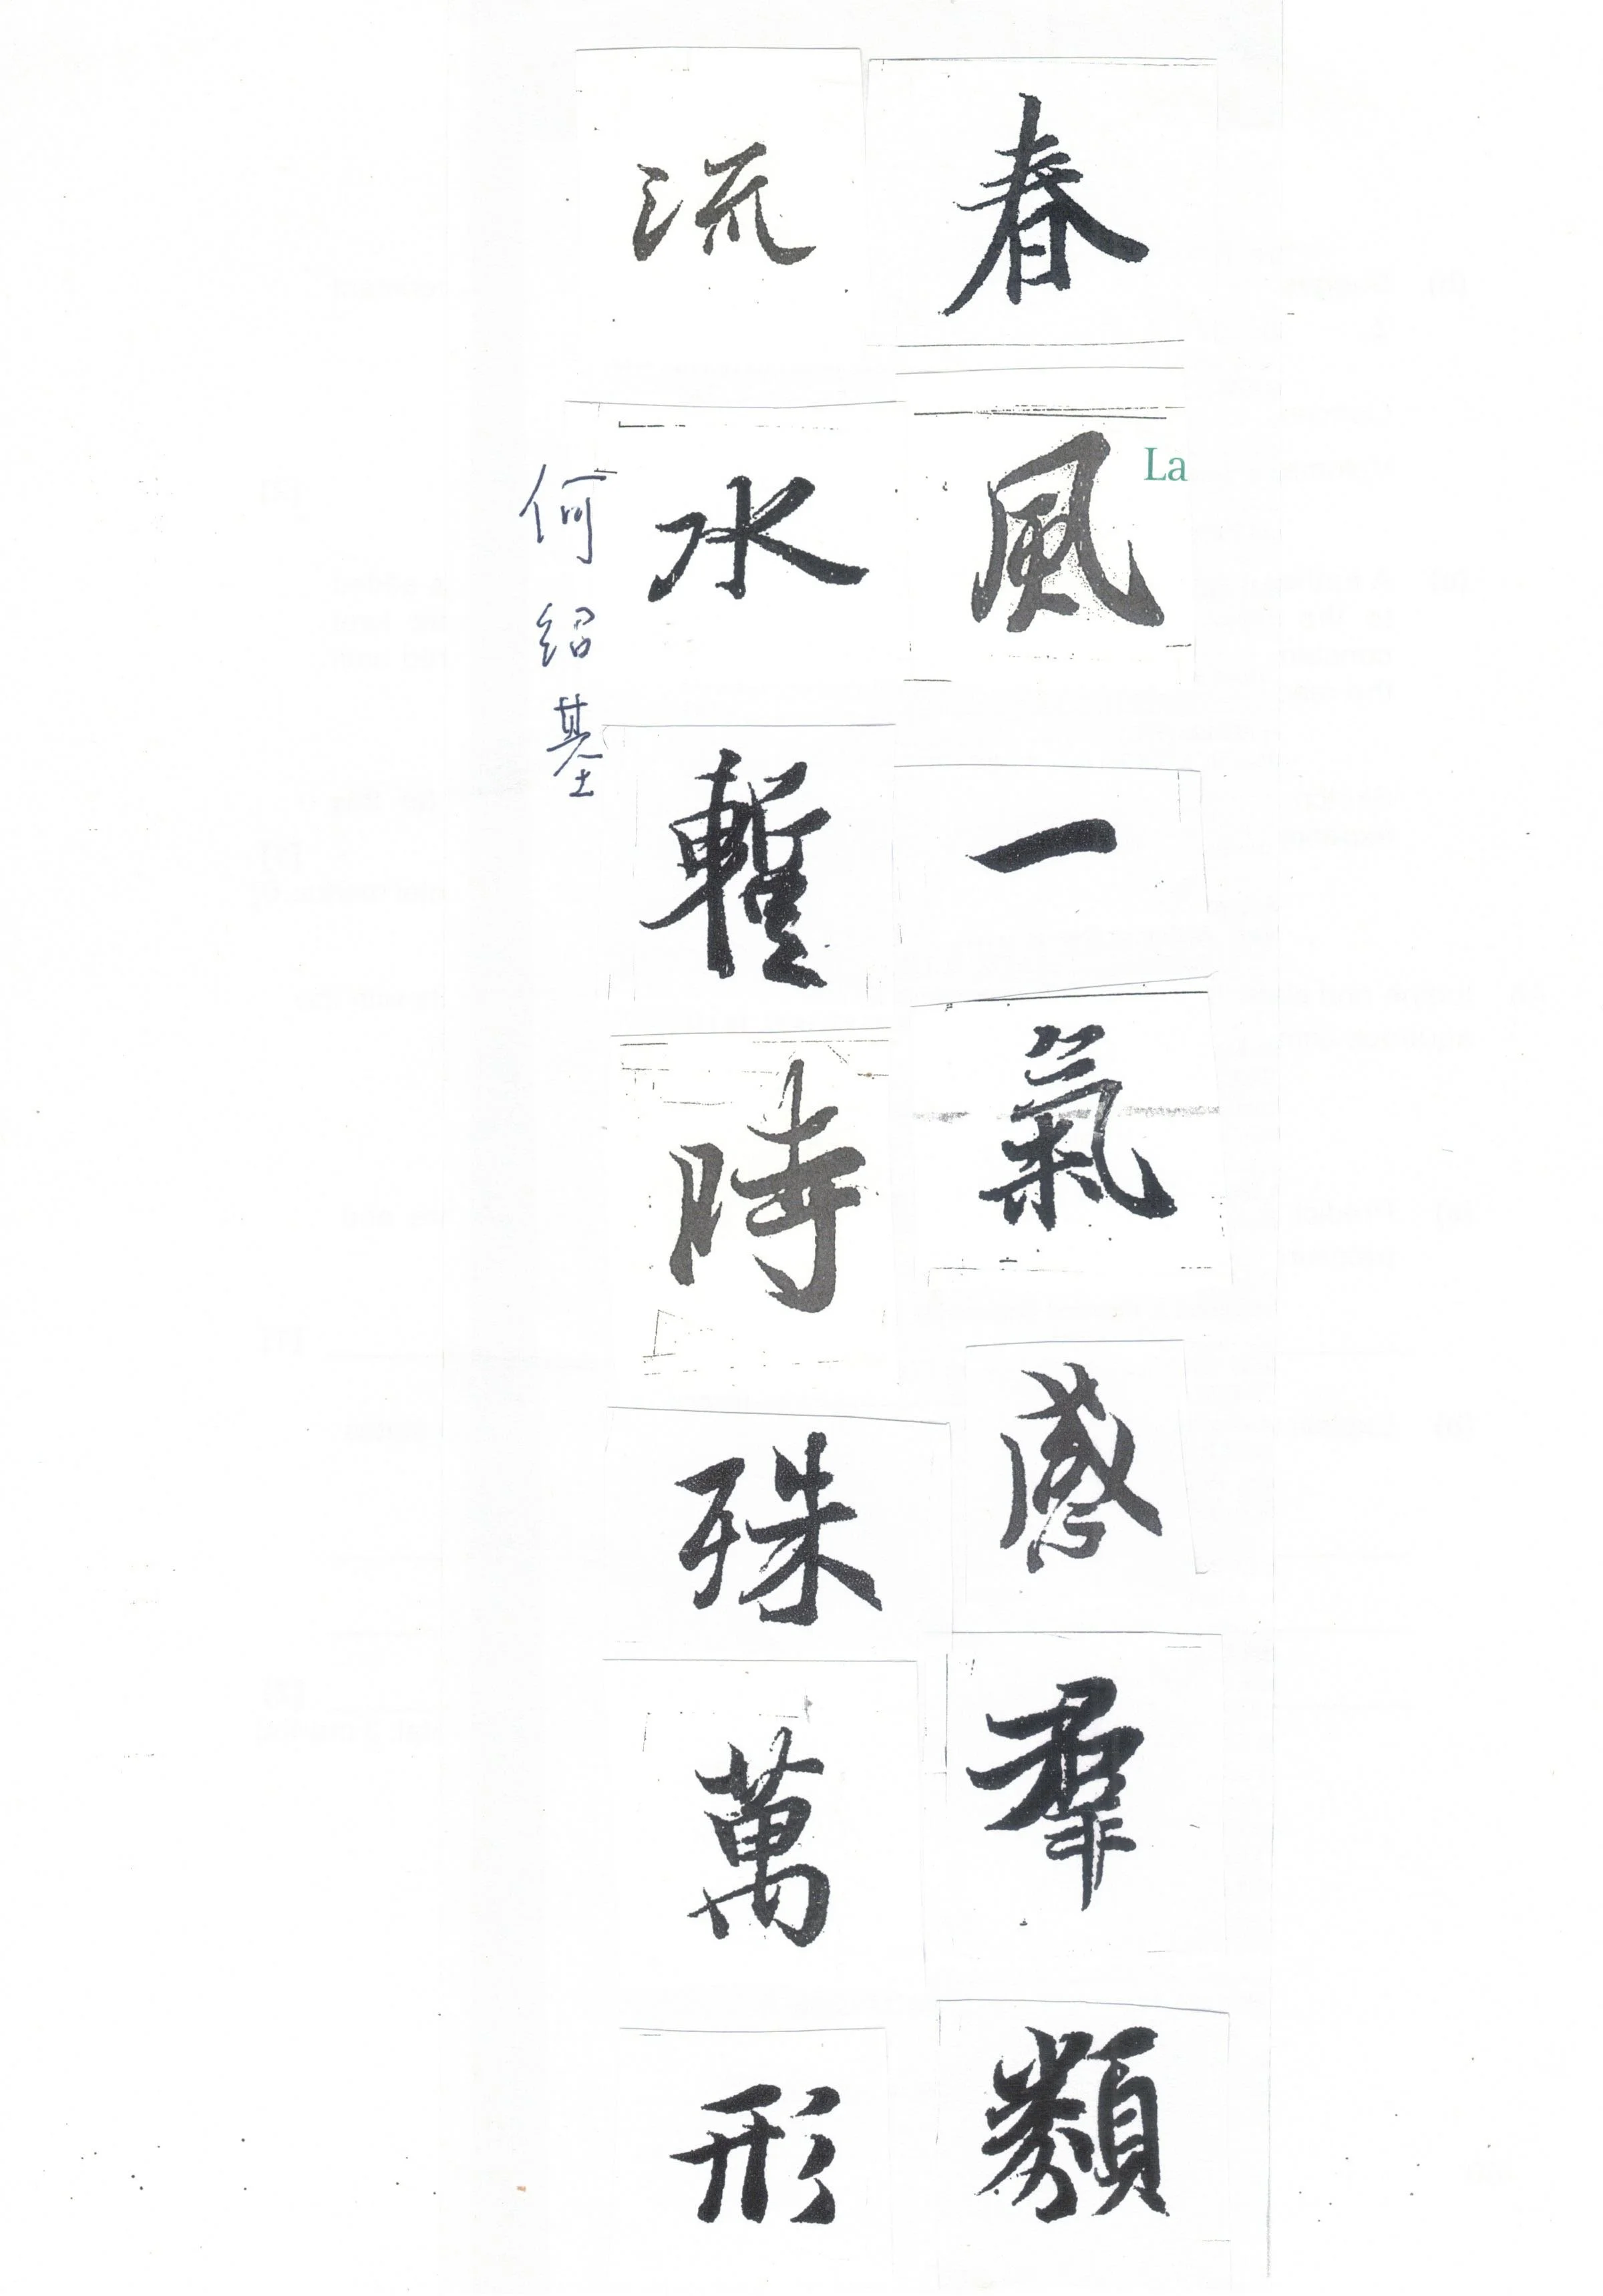 春風一氣感羣類
流水暫時殊萬形
何绍基
La